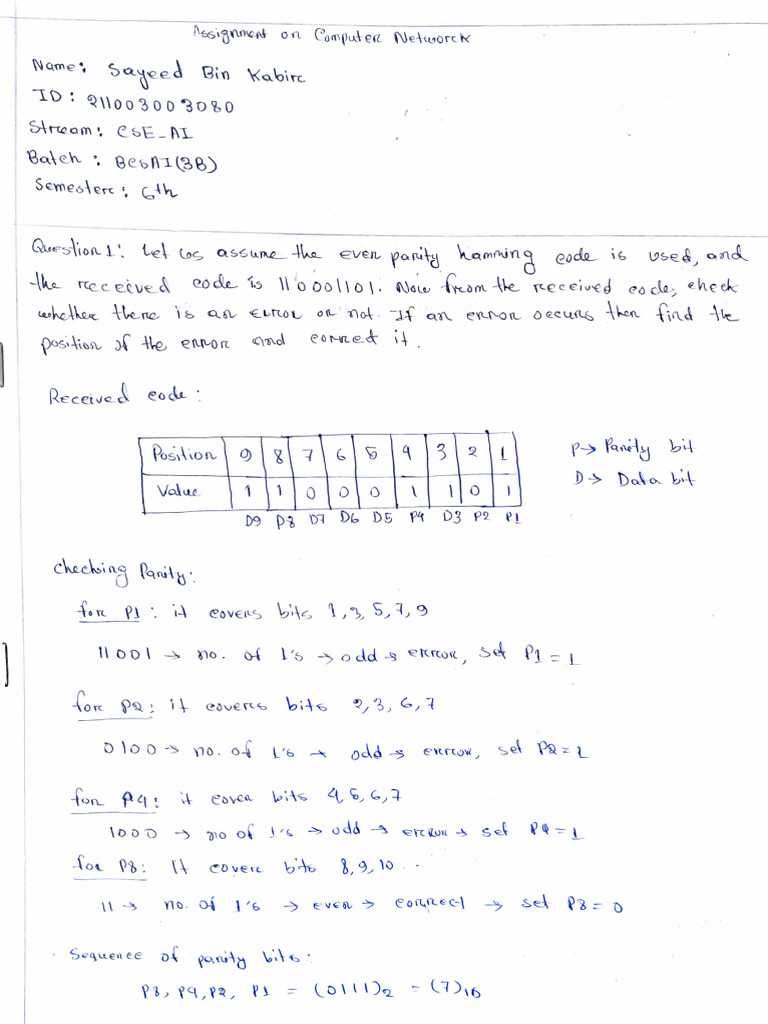 Assignment on Computer Network
Name: Sayeed Bin Kabir
ID: 211003003080
Stream: CSE-AI
Batch: BCSAI(3B)
Semester: 6th
Question 1: Let us assume the even parity hamming code is used, and
the received code is 110001101. Now from the received code, check
whether there is an error or not. If an error occurs then find the
position of the error and correct it.
Received code:
Position 9 8 7 6 5 4 3 2 1 P→ Parity bit
Value 1 1 0 0 0 1 1 0 1 D→ Data bit
D9 P8 D7 D6 D5 P4 D3 P2 P1
Checking Parity:
for P1: it covers bits 1,3,5,7,9
11001 → no. of 1's → odd → error, set P1=1
for P2: it covers bits 2,3,6,7
0100 → no. of 1's → odd → error, set P2=1
for P4: it cover bits 4,5,6,7
1000 → no of 1's → odd → error → set P4=1
for P8: It cover bits 8,9,10 ..
11 → no. of 1's → even → correct → set P8=0
Sequence of parity bits:
P8, P4, P2, P1 = (0111)2 = (7)10